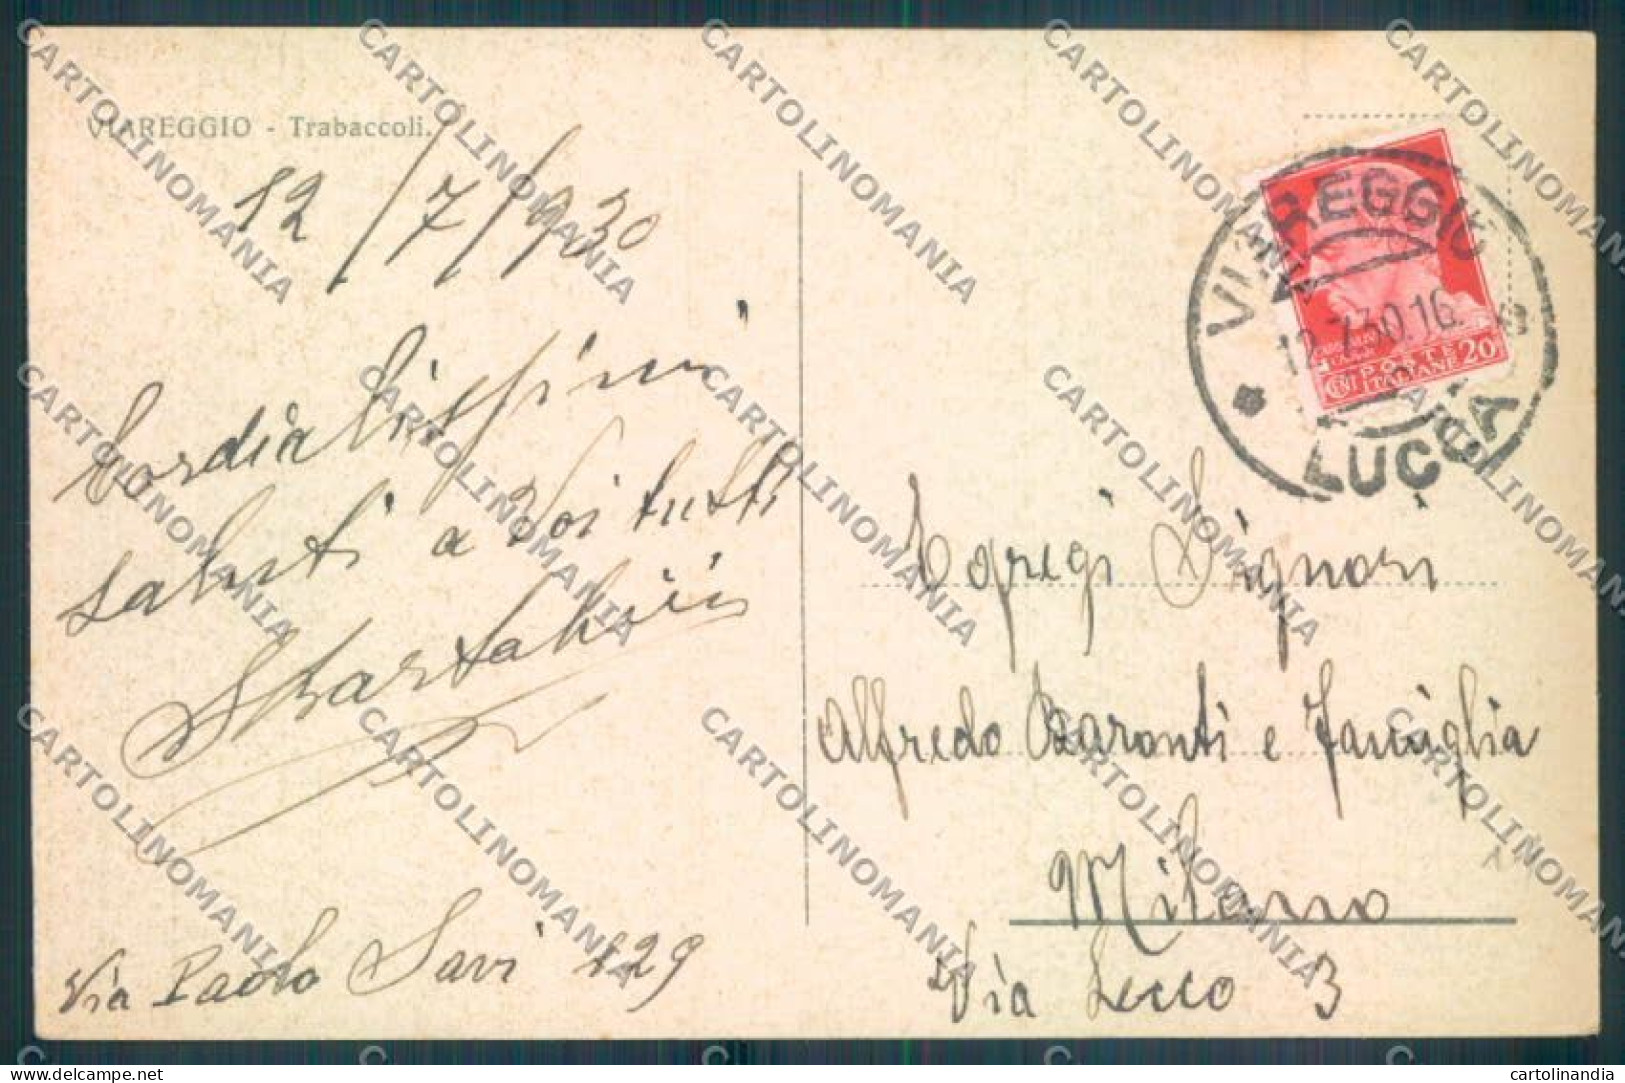 VIAREGGIO - Trabaccoli.
12/7/930
Cordialissimi
saluti a Voi tutti
Via Paolo Savi 129
VIAREGGIO
12.7.30.16
LUCCA
POSTE
ITALIANE
CENT 20
Egregi Signori
Alfredo Baronti e Famiglia
Milano
Via Lecco 3
CARTOLINOMANIA
delcampe.net
cartolinandia